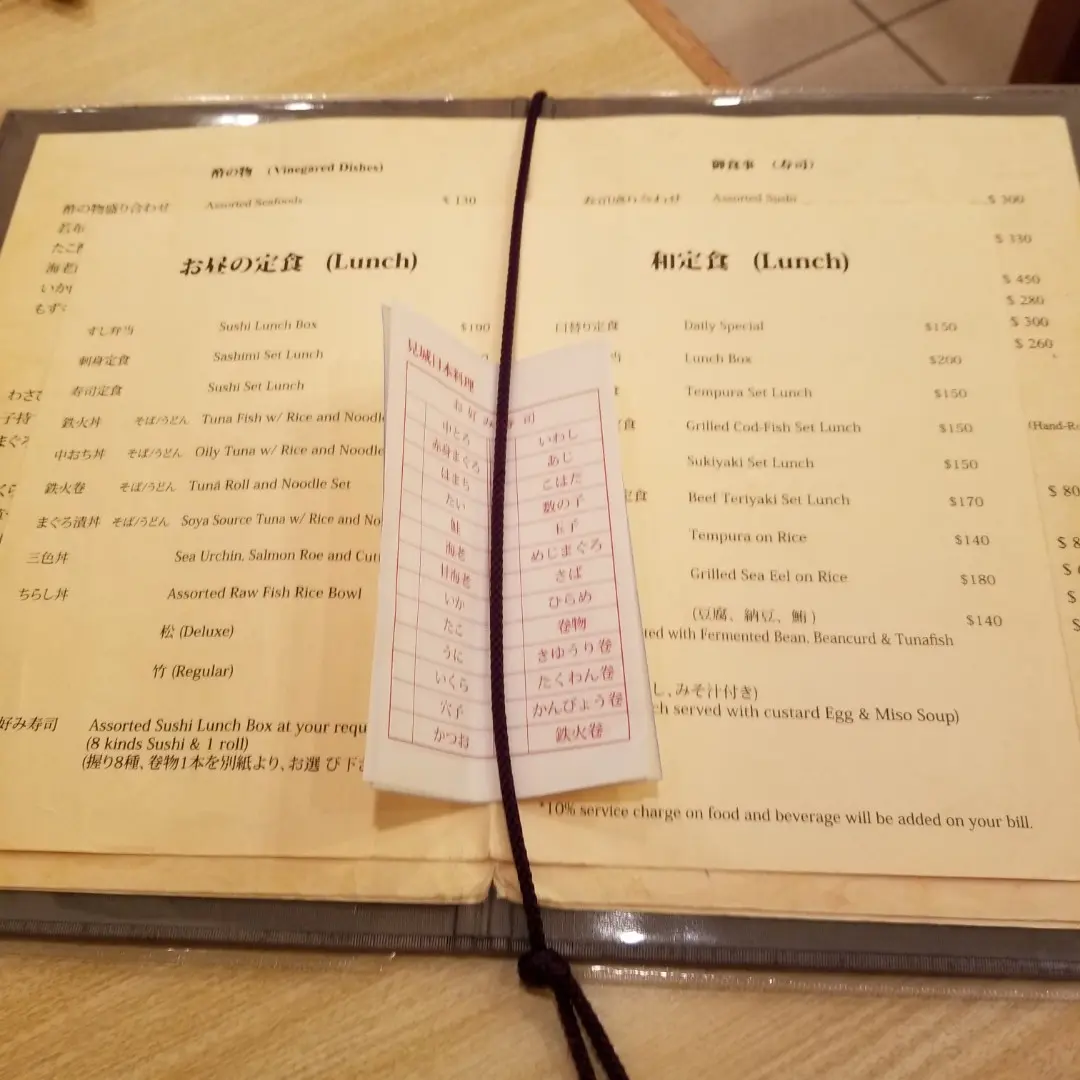 酢の物 (Vinegared Dishes)
酢の物盛り合わせ Assorted Seafoods $ 130
若布
たこ
海老
いか
もず
お昼の定食 (Lunch)
すし弁当 Sushi Lunch Box $100
刺身定食 Sashimi Set Lunch
寿司定食 Sushi Set Lunch
鉄火丼 そば/うどん Tuna Fish w/ Rice and Noodle
中おち丼 そば/うどん Oily Tuna w/ Rice and Noodle
鉄火巻 そば/うどん Tuna Roll and Noodle Set
まぐろ漬丼 そば/うどん Soya Source Tuna w/ Rice and No
三色丼 Sea Urchin, Salmon Roe and
ちらし丼 Assorted Raw Fish Rice Bowl
松 (Deluxe)
竹 (Regular)
好み寿司 Assorted Sushi Lunch Box at your requ
(8 kinds Sushi & 1 roll)
(握り8種、巻物1本を別紙より、お選び下
わさ
子持
まぐ
見城日本料理
お好み寿司
中とろ いわし
赤身まぐろ あじ
はまち こはだ
たい 数の子
鮭 玉子
海老 めじまぐろ
甘海老 さば
いか ひらめ
たこ 巻物
うに きゆうり巻
いくら たくわん巻
穴子 かんぴょう巻
かつお 鉄火巻
御食事 (寿司)
寿司盛り合わせ Assorted Sushi $ 300
$ 330
$ 450
$ 280
$ 300
$ 260
和定食 (Lunch)
日替り定食 Daily Special $150
当 Lunch Box $200
Tempura Set Lunch $150
定食 Grilled Cod-Fish Set Lunch $150
Sukiyaki Set Lunch $150
定食 Beef Teriyaki Set Lunch $170
Tempura on Rice $140
Grilled Sea Eel on Rice $180
(豆腐、納豆、鮪) $140
ted with Fermented Bean, Beancurd & Tunafish
し,みそ汁付き)
ch served with custard Egg & Miso Soup)
*10% service charge on food and beverage will be added on your bill.
(Hand-Ro
$ 80
$ 8
$
$
$